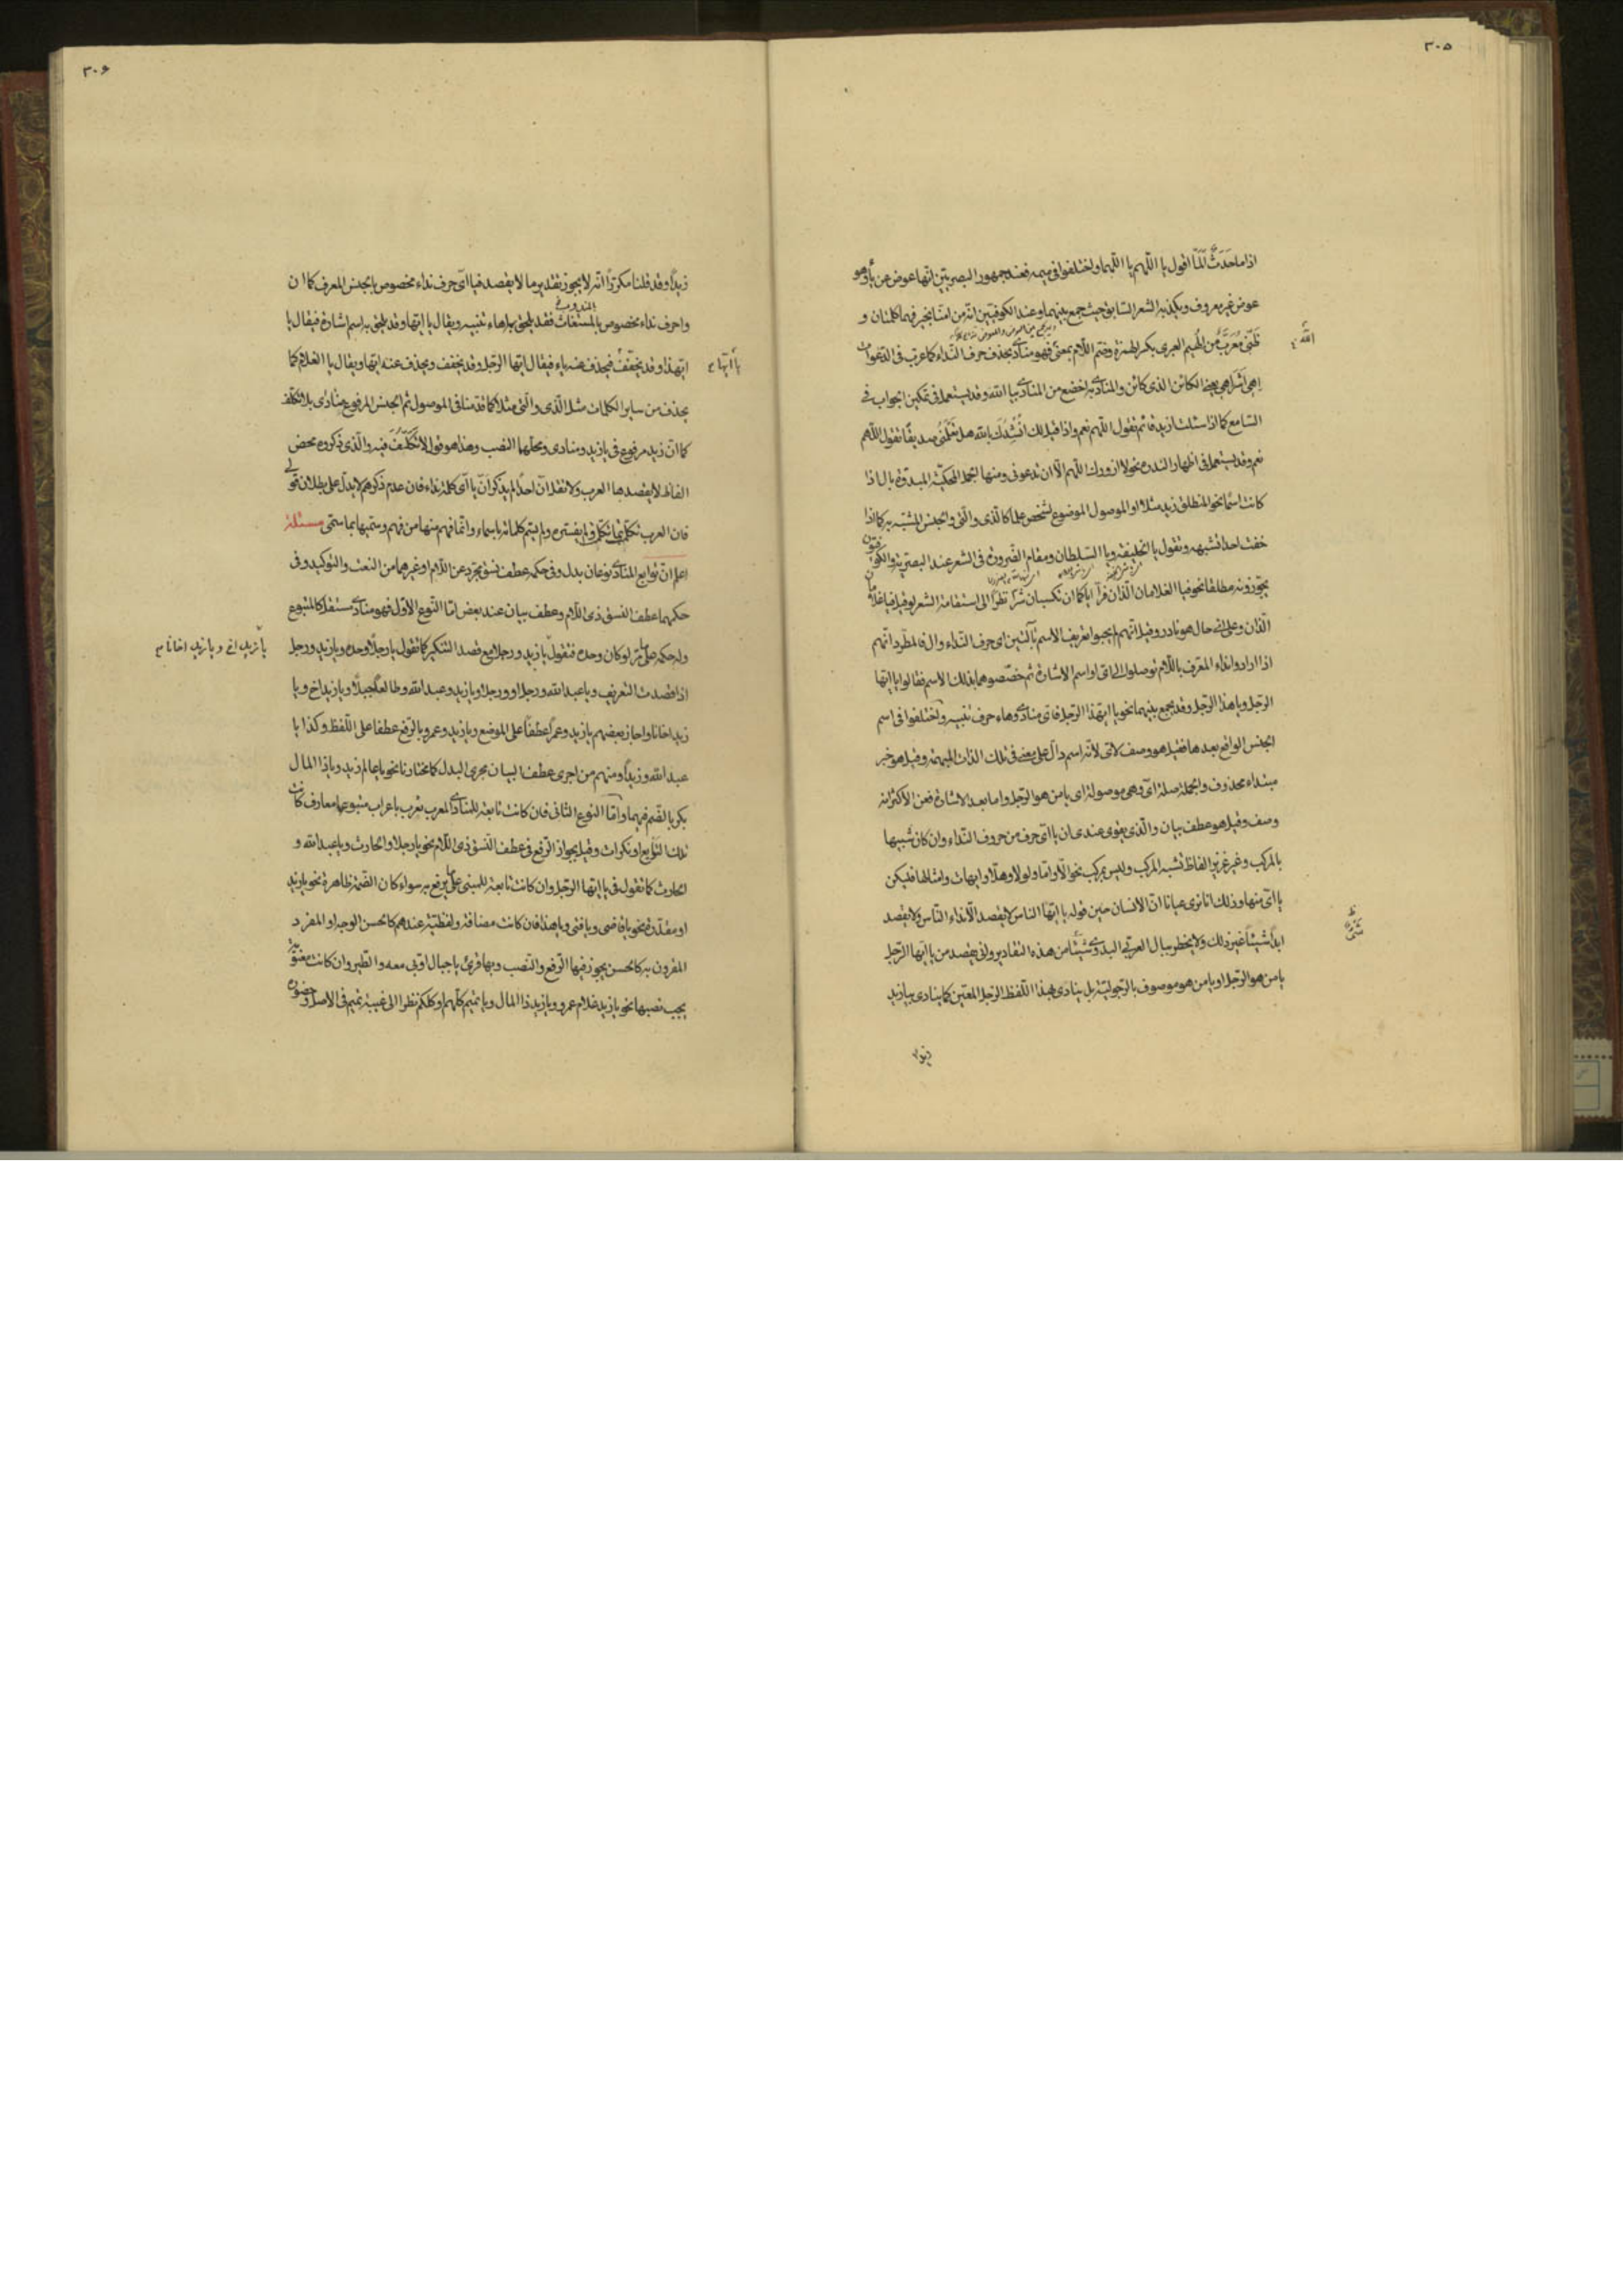 ٣٠٥
اذا ما حَدَثٌ اَلَمّا اقول يا اللّهم يا اللّهما واختلفوا فى ميمه فعند جمهور البصريّين انّها عوض عن يا وهو
عوض غير معروف ويكذبه الشعر السّابق حيث جمع بينهما وعند الكوفيّين انّه من امنّا بخير فهما كلمتان و
ظنّى مُعَرَّبٌ من الُهيم العبرى بكسر الهمزة وضم اللّام بمعنى فهو منادى بحذف حرف النّداء كما عرّب فى الدّعوات
اللّه
اِهِى اَشراهِى يعنى الكائن الذى كائن والمنادى به اخضع من المنادى بيا اللّه وقد يستعمل فى تمكين الجواب فى
السّامع كما اذا سئلت ازيد قائم تقول اللّهم نعم واذا قيل لك اُنشِدُكَ بالله هل تَعلَمُنى صديقًا تقول اللّهم
نعم وقد يستعمل فى اظهار الندره نحو لا ازورك اللّهم الّا ان تدعونى ومنها الجمل المحكيّة المبدوّة بال اذا
كانت اسمًا نحو المنطلق زيد مثلا او الموصول الموضوع لشخص علما كالّذى والّتى والجنس المشتبه به كما اذا
خفت احدا تشبهه وتقول يا الخليفة ويا السّلطان ومقام الضّرورة فى الشعر عند البصريّة والكوفيّون
يجوّزونه مطلقا نحو فيا الغلامان اللّذان فرّا اياكما ان تكسبان شرّا نظرًا الى استقامة الشعر لو قيل فيا غلامان
اللّذان وعلى اىّ حال هو نادر وقيل انّهم لم يحبّوا تعريف الاسم بآلتين اى حرف النّداء وال فالمطّرد انّهم
اذا ارادوا نداء المعرّف باللّام توصلوا الى اىّ او اسم الاشارة ثم خصّصوهما بذلك الاسم فقالوا يا ايّها
الرّجل ويا هذا الرّجل وقد يجمع بينهما نحو يا ايّهذا الرّجل فاىّ منادى وهاء حرف تنبيه واختلفوا فى اسم
الجنس الواقع بعدها فقيل هو وصف لاىّ لانّه اسم دالّ على معنى فى تلك الذات المبهمة وقيل هو خبر
مبتداء محذوف والجملة صلة اىّ وهى موصولة اى يا من هو الرّجل واما بعد الاشارة فعن الاكثر انّه
وصف وقيل هو عطف بيان والّذى يقوى عندى ان يا اىّ حرف من حروف النّداء وان كان شبيها
بالمركب وغير عزيز الفاظ تشبه المركب وليس بمركب نحو الّا وامّا ولولا وهلّا وايهات وامثالها فليكن
يا اىّ منها وذلك انّا نرى عيانا انّ الانسان حين قوله يا ايّها الناس لا يقصد الّا نداء النّاس ولا يقصد
ابدًا شيئًا غير ذلك ولا يخطر ببال العربى البدوى شيئًا من هذه التقادير ولن يقصد من يا ايّها الرّجل
يا من هو الرّجل او يا من هو موصوف بالرّجوليّة بل ينادى بهذا اللّفظ الرّجل المعيّن كما ينادى بيا زيد
زيدا
٣٠۶
زيدًا وقد قلنا مكررًا انّه لا يجوز تقدير ما لا يقصد فيا اىّ حرف نداء مخصوص بالجنس المعرف كما ان
واحرف نداء مخصوص بالمستغاث فقد يلحق بها هاء تنبيه ويقال يا ايّها وقد يلحق به اسم اشارة فيقال يا
ايّهذا وقد يخفّفُ فيحذف عنه ياء فيقال ايّها الرّجل وقد يخفف ويحذف عنه ايّها ويقال يا الغلام كما
يا ايّها
يحذف من ساير الكلمات مثل الّذى والّتى مثلا كما قدمنا فى الموصول ثم الجنس المرفوع منادى بلا تكلّف
كما انّ زيد مرفوع فى يا زيد ومنادى ومحلّهما النّصب وهذا هو قول لا تَكَلُّفَ فيه والّذى ذكروه محض
الفاظ لا يقصدها العرب ولا تقل انّ احدًا لم يذكر انّ يا اىّ كلمة نداء فان عدم ذكرهم لا يدلّ على بطلان قولى
فان العرب تكلّم بما تكلّم ولم يفسّره ولم يسمّ كلماته باسماء وانّما فهم منها من فهم وسمّيها بما سمّى مسئلة
اعلم انّ توابع المنادى نوعان بدل وفى حكمه عطف نسق مجرّد عن اللّام او غيرهما من النّعت والتّوكيد وفى
حكمهما عطف النسق ذى اللّام وعطف بيان عند بعض امّا النّوع الاوّل فهو منادى مستقل كالمتبوع
وله حكمه على ما مرّ لو كان وحده فتقول يا زيد ورجلا مع قصد التنكير كما تقول يا رجلًا وحده ويا زيد ورجل
اذا قصدت التعريف ويا عبد الله ورجل او ورجلا ويا زيد وعبد الله وطالعًا جبلًا ويا زيد اخ ويا
زيد اخانا واجاز بعضهم يا زيد وعمرًا عطفًا على الموضع ويا زيد وعمرو بالرّفع عطفا على اللّفظ وكذا يا
عبد الله وزيدًا ومنهم من اجرى عطف البيان مجرى البدل كما نختار نا نحو يا عالم زيد ويا ذا المال
بكر بالضّم فيهما وامّا النوع الثانى فان كانت تابعة للمنادى المعرب تعرب باعراب متبوعها معارف كانت
تلك التّوابع او نكرات وقيل بجواز الرّفع فى عطف النّسق ذى اللّام نحو يا رجلا والحارث ويا عبد الله و
الحارث كما تقول فى يا ايّها الرّجل وان كانت تابعة للمبنى على ما يرفع به سواء كان الضّمة ظاهرة نحو يا زيد
او مقدّرة نحو يا قاضى ويا فتى ويا هذا فان كانت مضافة ولفظيّة عندهم كالحسن الوجه او المفرد
المقرون به كالحسن يجوز فيها الرّفع والنّصب وبها قرئ يا جبال اوّبى معه والطّير وان كانت معنويّة
يجب نصبها نحو يا زيد غلام عمرو ويا زيد ذا المال ويا تميم كلّهم او كلكم نظرا الى غيبة تميم فى الاصل وحضوره